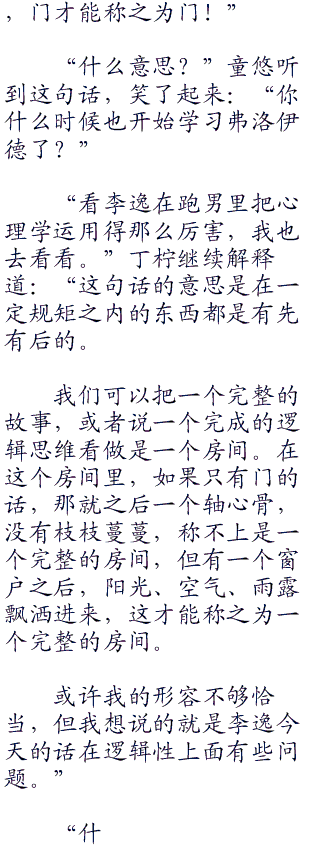 ，门才能称之为门！”
“什么意思？”童悠听
到这句话，笑了起来：“你
什么时候也开始学习弗洛伊
德了？”
“看李逸在跑男里把心
理学运用得那么厉害，我也
去看看。”丁柠继续解释
道：“这句话的意思是在一
定规矩之内的东西都是有先
有后的。
我们可以把一个完整的
故事，或者说一个完成的逻
辑思维看做是一个房间。在
这个房间里，如果只有门的
话，那就之后一个轴心骨，
没有枝枝蔓蔓，称不上是一
个完整的房间，但有一个窗
户之后，阳光、空气、雨露
飘洒进来，这才能称之为一
个完整的房间。
或许我的形容不够恰
当，但我想说的就是李逸今
天的话在逻辑性上面有些问
题。”
“什